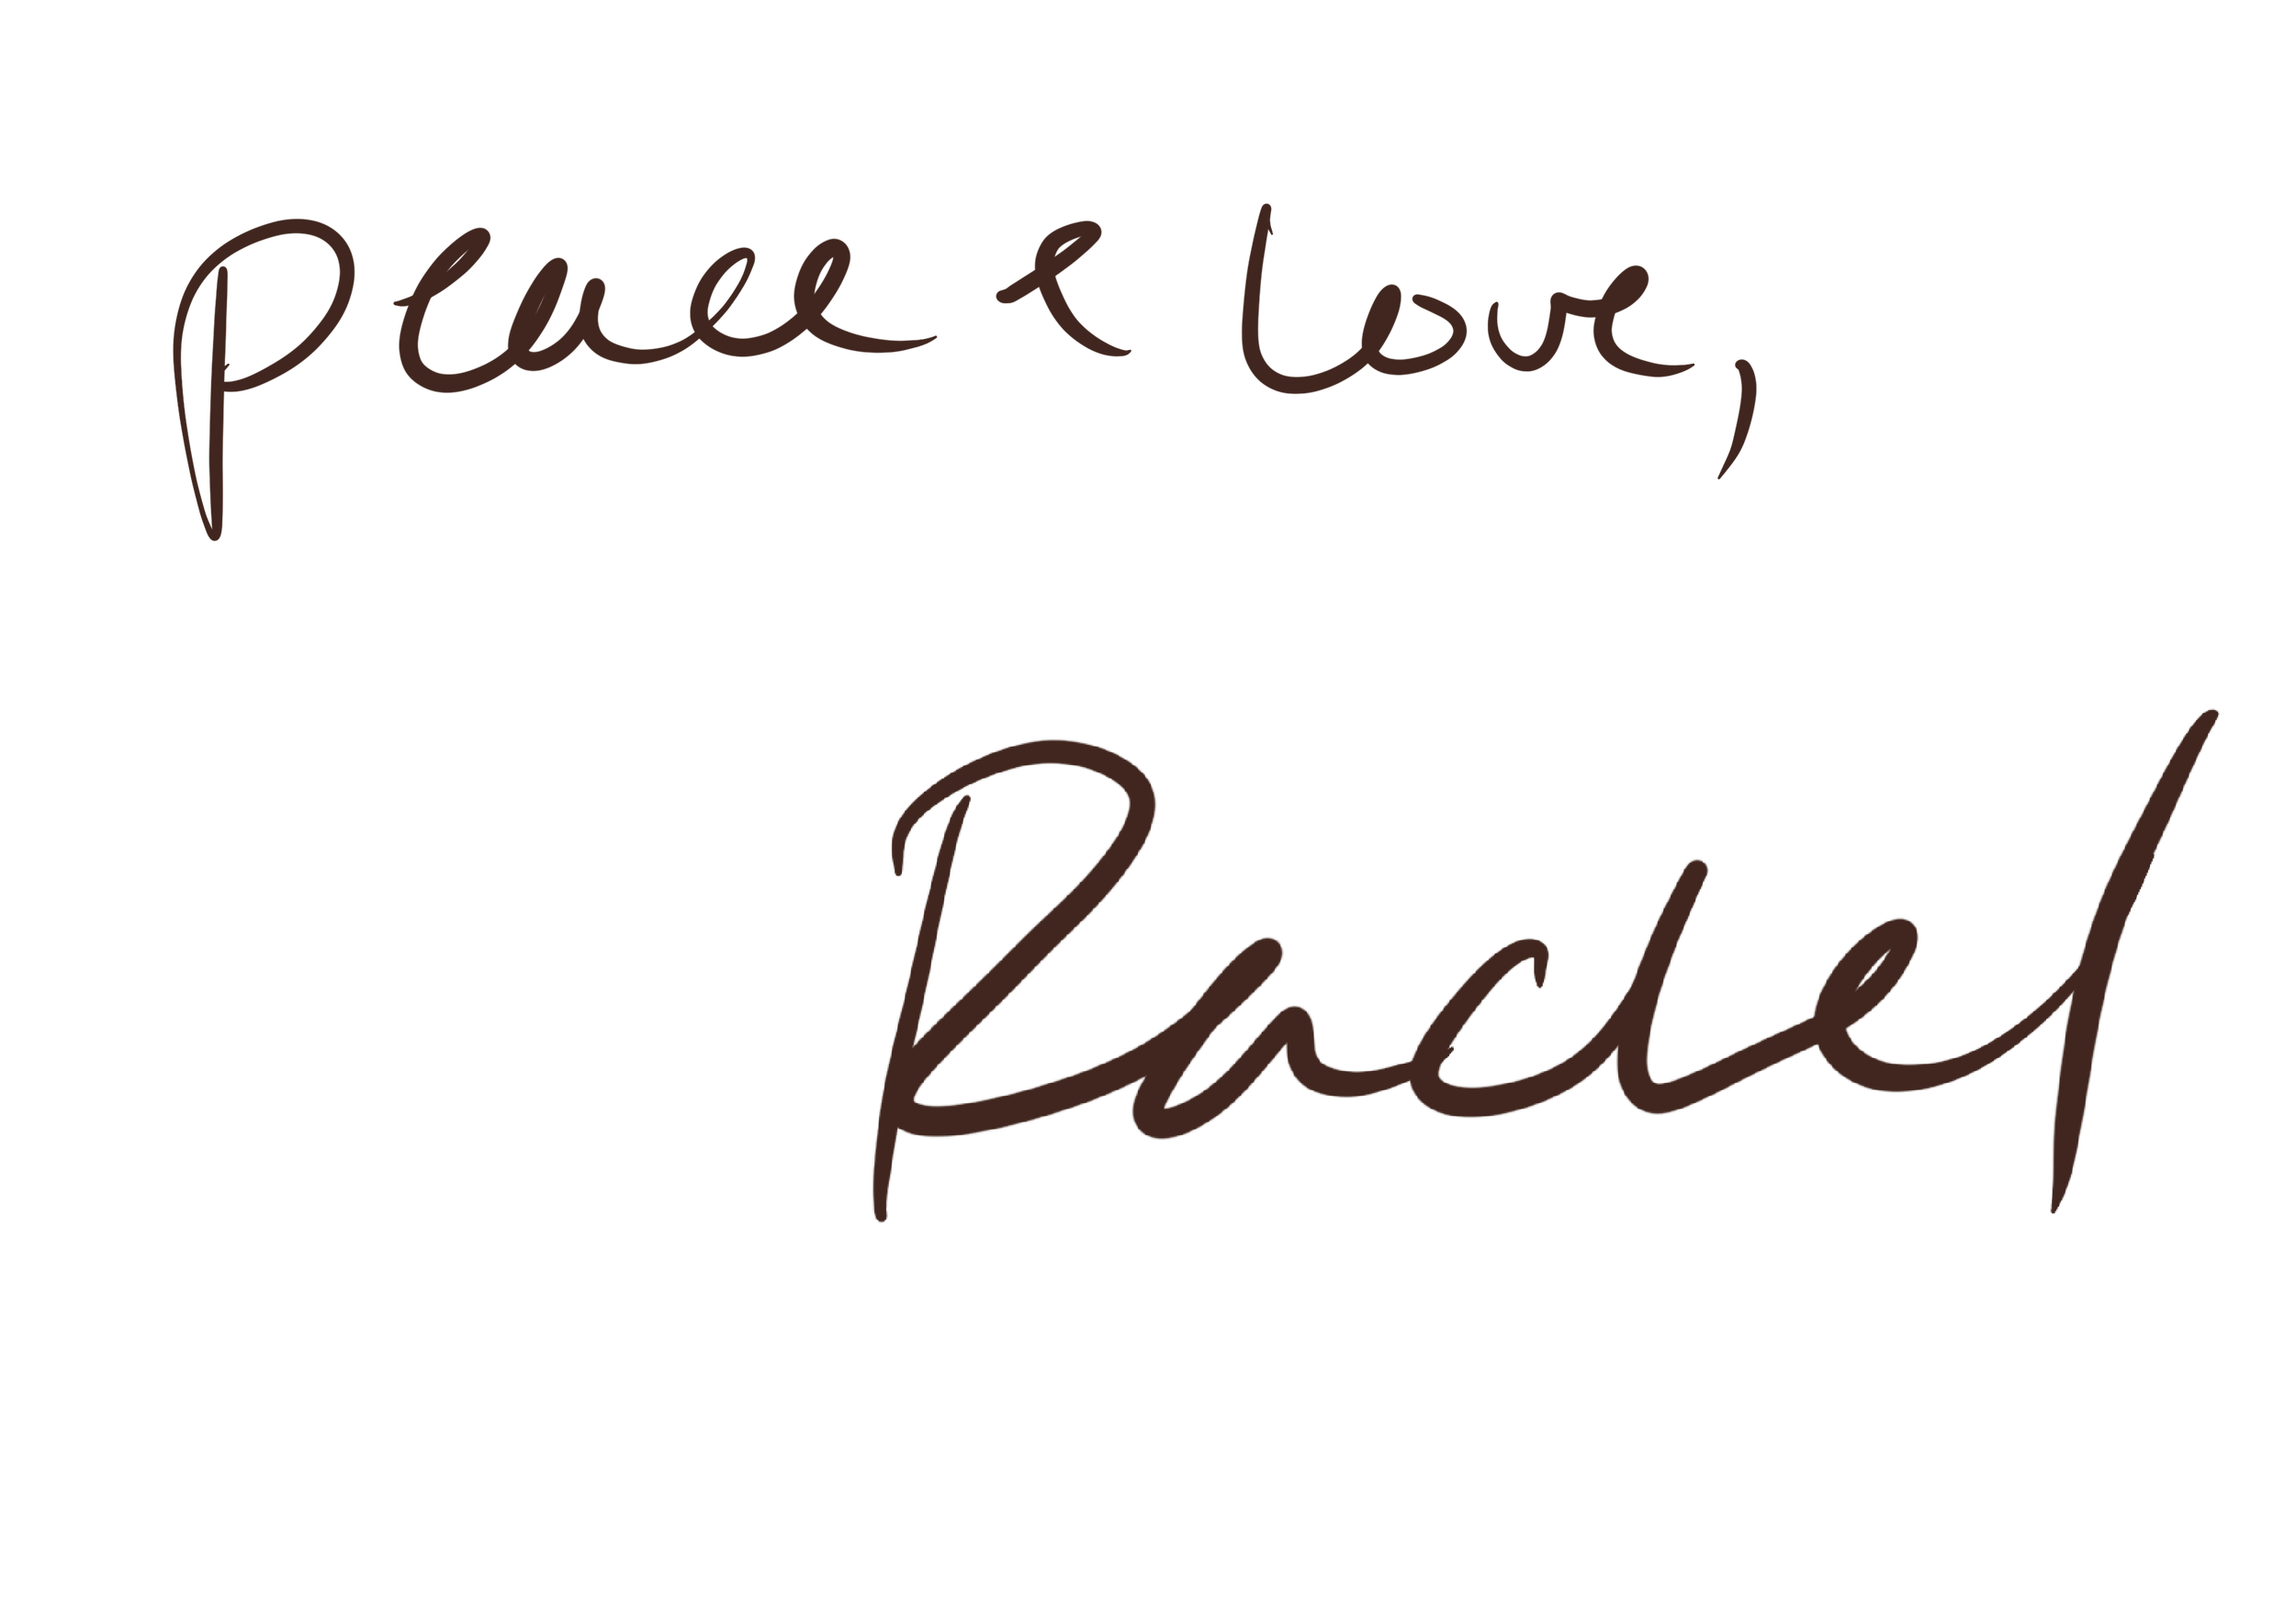 Peace & Love,
Rachel